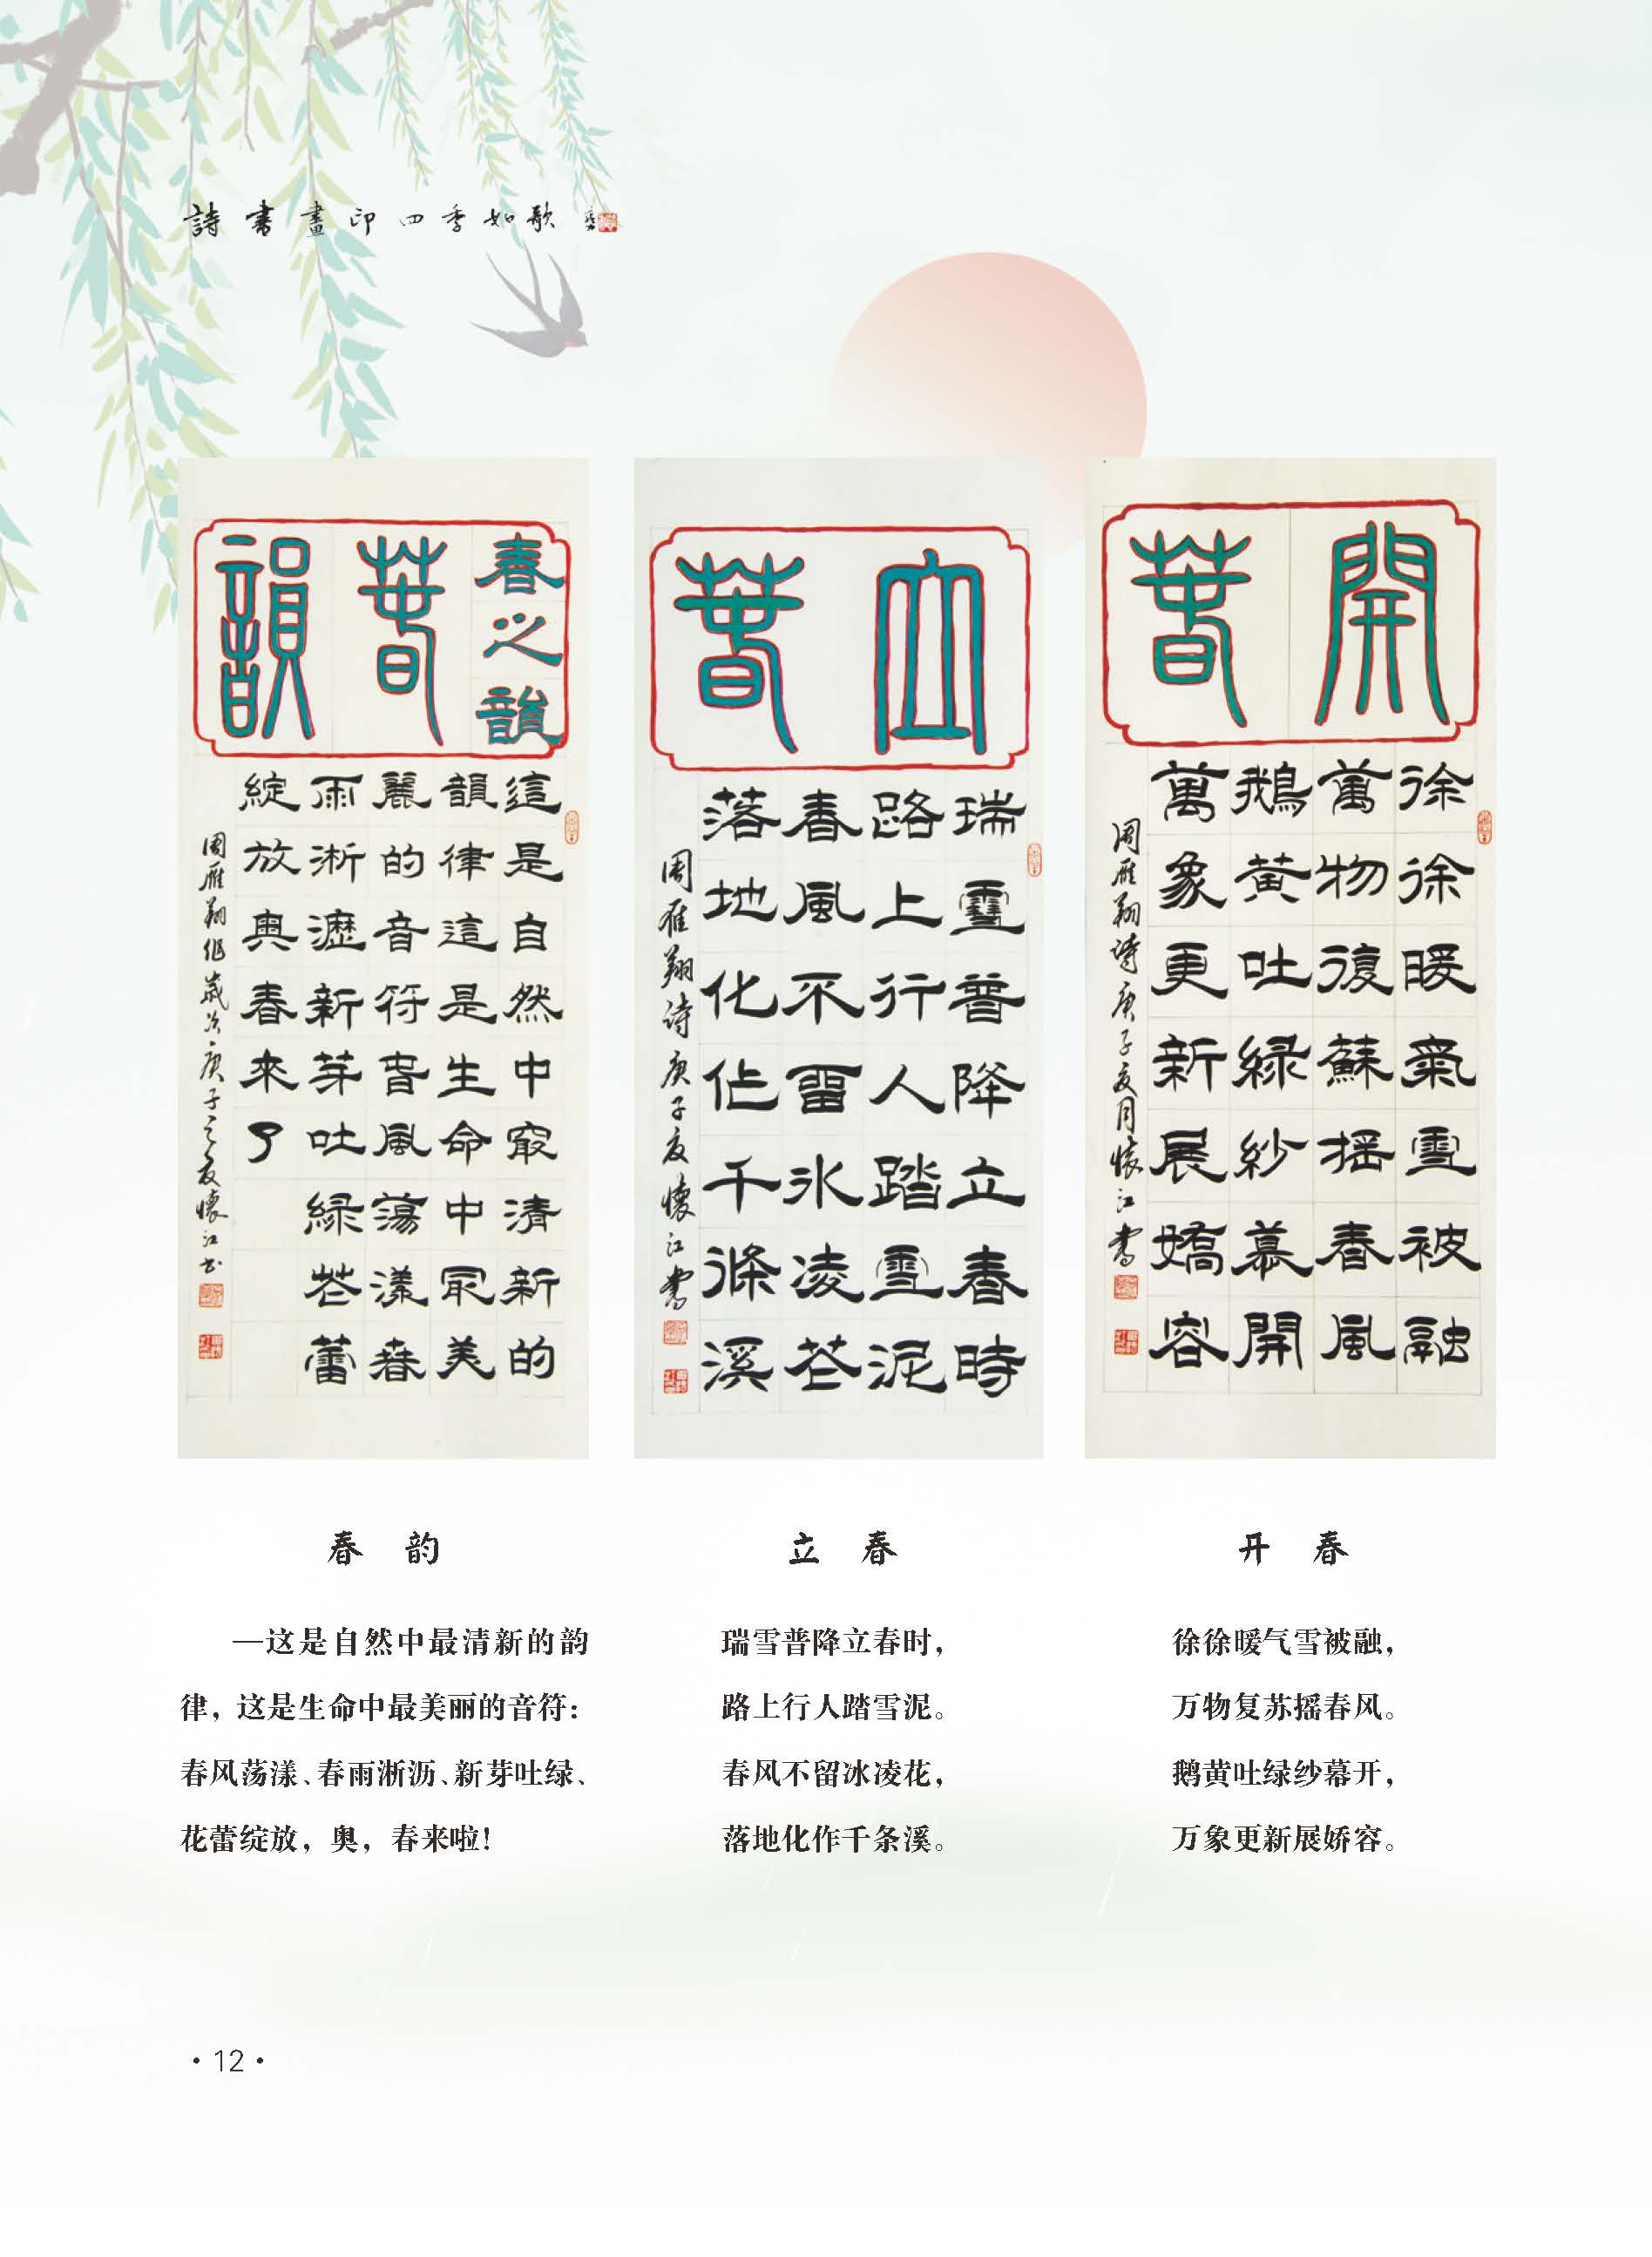 詩書畫印四季如歌
春之韻
春韻
這是自然中最清新的
韻律這是生命中最美
麗的音符春風蕩漾春
雨淅瀝新芽吐緑花蕾
綻放奥春來了
周雁翔作歲次庚子之夏懷江书
立春
瑞雪普降立春時
路上行人踏雪泥
春風不留冰凌花
落地化作千條溪
周雁翔诗庚子夏懷江書
開春
徐徐暖氣雪被融
萬物復蘇摇春風
鵝黄吐緑紗幕開
萬象更新展嬌容
周雁翔诗庚子夏月懷江書
春 韵
—这是自然中最清新的韵
律，这是生命中最美丽的音符：
春风荡漾、春雨淅沥、新芽吐绿、
花蕾绽放，奥，春来啦！
立 春
瑞雪普降立春时，
路上行人踏雪泥。
春风不留冰凌花，
落地化作千条溪。
开 春
徐徐暖气雪被融，
万物复苏摇春风。
鹅黄吐绿纱幕开，
万象更新展娇容。
·12·